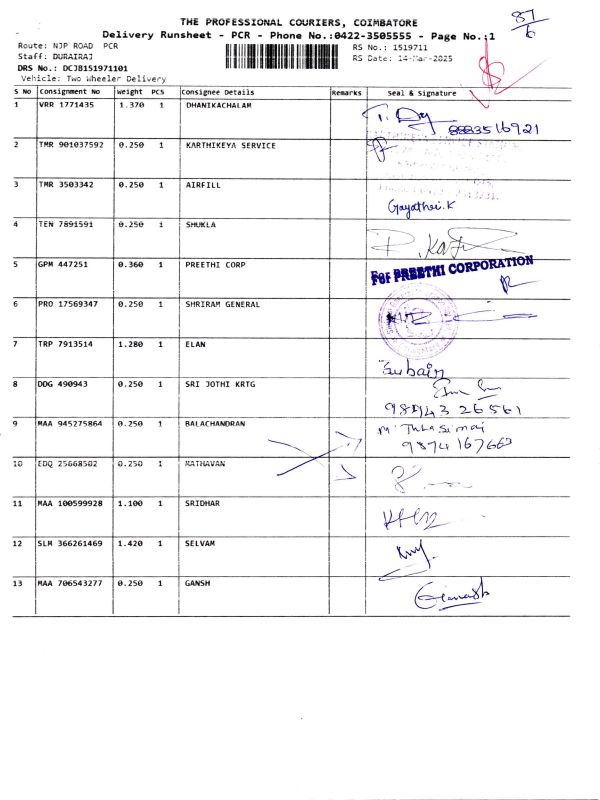 87
6
THE PROFESSIONAL COURIERS, COIMBATORE
Delivery Runsheet - PCR - Phone No.:0422-3505555 - Page No.:1
Route: NJP ROAD PCR
RS No.: 1519711
Staff: DURAIRAJ
RS Date: 14-Mar-2025
DRS No.: DCJB151971101
Vehicle: Two Wheeler Delivery
S No Consignment No Weight PCS Consignee Details Remarks Seal & Signature
1 VRR 1771435 1.370 1 DHANIKACHALAM
8883516921
2 TMR 901037592 0.250 1 KARTHIKEYA SERVICE
3 TMR 3503342 0.250 1 AIRFILL
Gayathri.K
4 TEN 7891591 0.250 1 SHUKLA
5 GPM 447251 0.360 1 PREETHI CORP
For PREETHI CORPORATION
6 PRO 17569347 0.250 1 SHRIRAM GENERAL
7 TRP 7913514 1.280 1 ELAN
Subair
8 DDG 490943 0.250 1 SRI JOTHI KRTG
98943 26561
9 MAA 945275864 0.250 1 BALACHANDRAN
9894167663
10 EDQ 25668502 0.250 1 MATHAVAN
11 MAA 100599928 1.100 1 SRIDHAR
12 SLM 366261469 1.420 1 SELVAM
13 MAA 706543277 0.250 1 GANSH
Ganesh